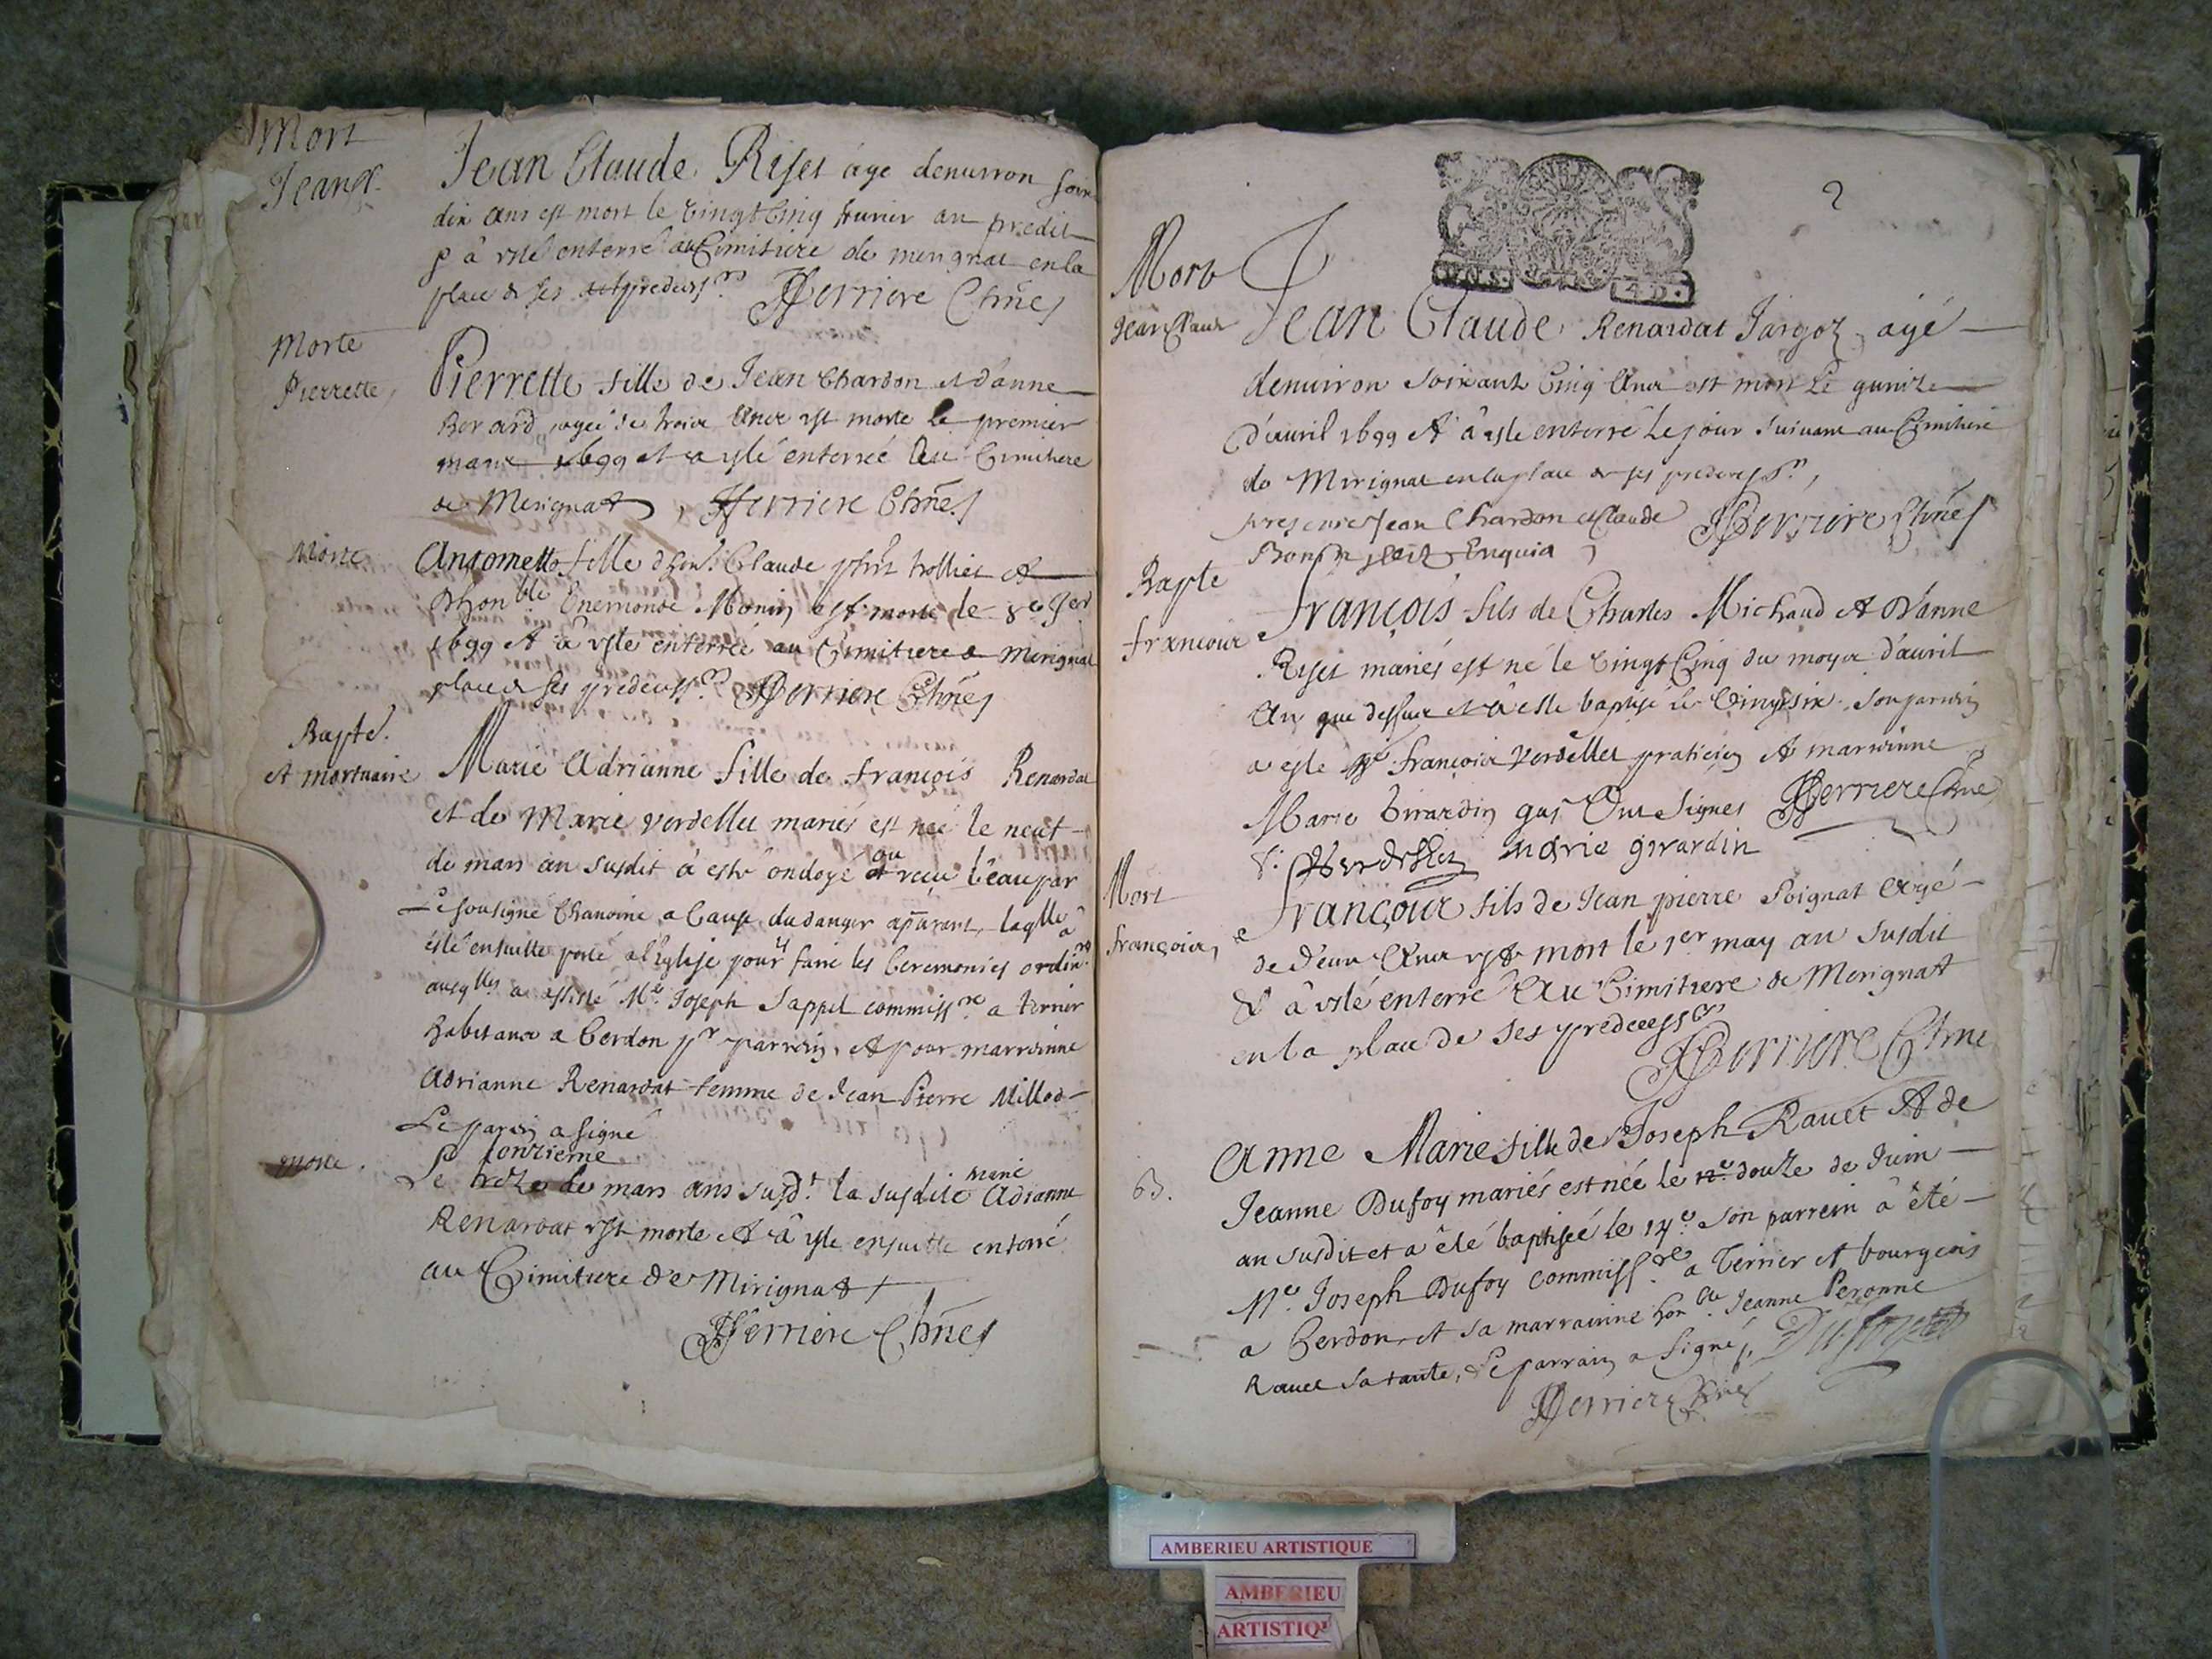 Mort
Jean Cl.
Jean Claude Riset âge denuiron soix
dix ans est mort le vingt Cinq feurier an predit
& â esté enterré au Cimitiere de merignat en la
place de ses predecess.rs JFerriere Chñe
Morte
Pierrette,
Pierrette fille de Jean Chardon et d'anne
Berard agée de trois Ans est morte le premier
mars 1699 et a esté enterrée Au Cimitiere
de Merignat JFerriere Chñe
Morte
Antoinette fille d'hon. Claude trollier et
d'hon.ble Enemonde Monin est morte le 8e
1699 et â esté enterrée au Cimitiere de Merignat
place de ses predecess.rs JFerriere Chñe
Bapte.
et mortuaire
Marie Adrianne fille de françois Renardat
et de Marie Verdellet mariés est née le neuf
de mars an susdit â esté ondoyé ou receu l'eau par
Le sousigné Chanoine a Cause du danger aparant, laqlle â
esté ensuitte porté a l'Eglise pour y faire les Ceremonies ordin.res
auxqlles a assisté Me Joseph Sappel commiss.re a terrier
habitant a Cerdon pr parrain, et pour marrainne
Adrianne Renardat femme de Jean Pierre Millod
Le parain a signé
morte,
l'onzieme
Le treze de mars ans susd.t la susdite marie Adrianne
Renardat est morte et â esté ensuitte enterré
au Cimitiere de Mirignat
JFerriere Chñe
2
4 D.
Mort
Jean Claude
Jean Claude Renardat Jargoz, agé
denuiron soixante Cinq Ans est mort Le quinze
d'auril 1699 et â esté enterré Le jour suiuant au Cimitiere
de Mirignat en la place de ses predecess.rs,
presents Jean Chardon et Claude JFerriere Chñe
Bapte
francois
François fils de Charles Michaud et d'anne
Riset mariés est né le vingt Cinq du moys d'auril
An que dessus et â esté baptisé le vingt six. son parrain
a esté Me françois Verdellet praticien et marrainne
Marie Girardin qui Ont signés JFerriere Chñe
Verdellet marie girardin
Mort
françois,
Françoix fils de Jean pierre Poignat Agé
de deux Ans est mort le 1er may an susdit
& â esté enterré Au Cimitiere de Merignat
en la place de ses predecess.rs
JFerriere Chñe
Bt.
Anne Marie fille de Joseph Rauet et de
Jeanne Dufoy mariés est née le 12e douze de Juin
an susdit et a êté baptisée le 14e. son parrein â êté
Me. Joseph Dufoy Commiss.re a Terrier et bourgeois
a Cerdon, et sa marrainne hon.le Jeanne Peronne
Rauet sa tante, Le parrain a signé, Dufoy
JFerriere Chñe
AMBERIEU ARTISTIQUE
AMBERIEU
ARTISTIQ